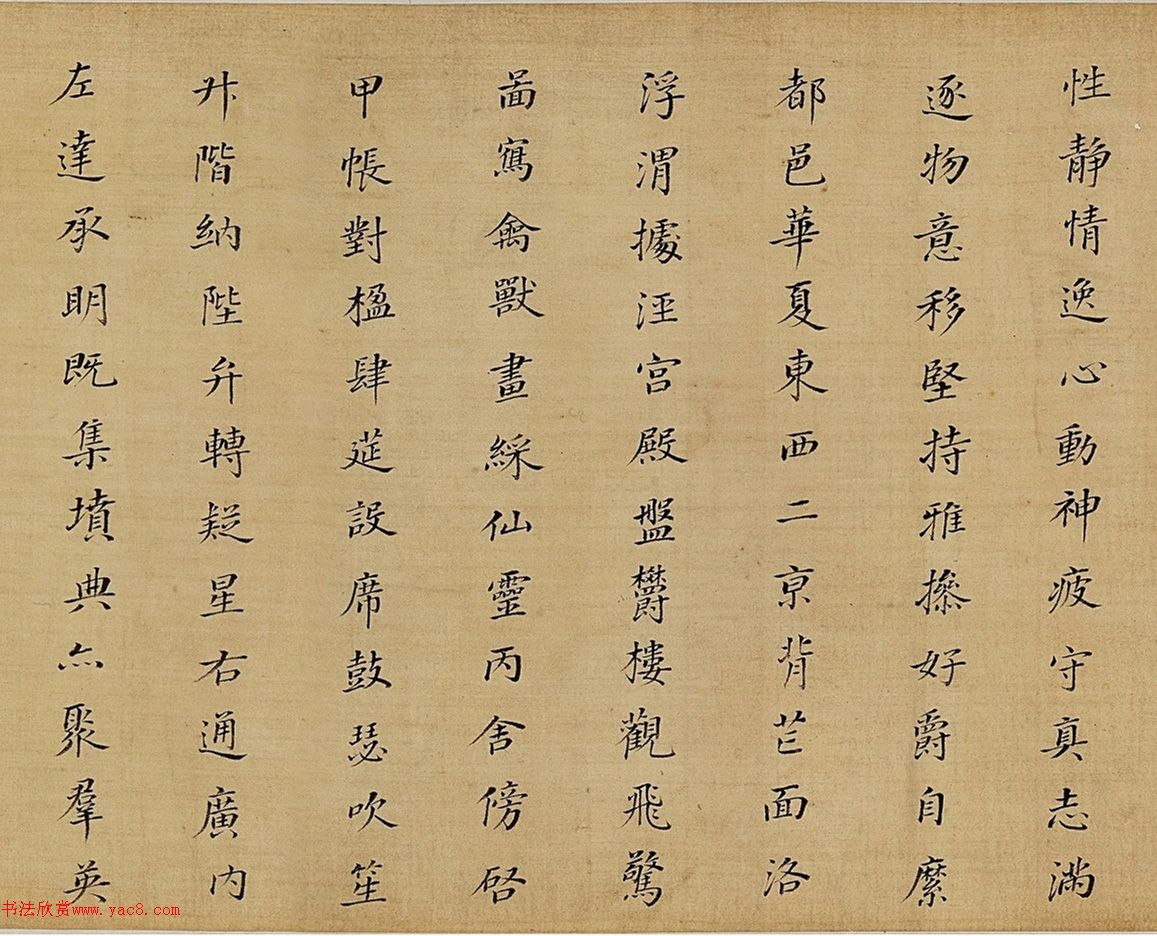 性靜情逸心動神疲守真志滿
逐物意移堅持雅操好爵自縻
都邑華夏東西二京背芒面洛
浮渭據涇宮殿盤鬱樓觀飛驚
啚寫禽獸畫綵仙靈丙舍傍啓
甲帳對楹肆筵設席鼓瑟吹笙
升階納陛弁轉疑星右通廣內
左達承明既集墳典亦聚羣英
书法欣赏www.yac8.com